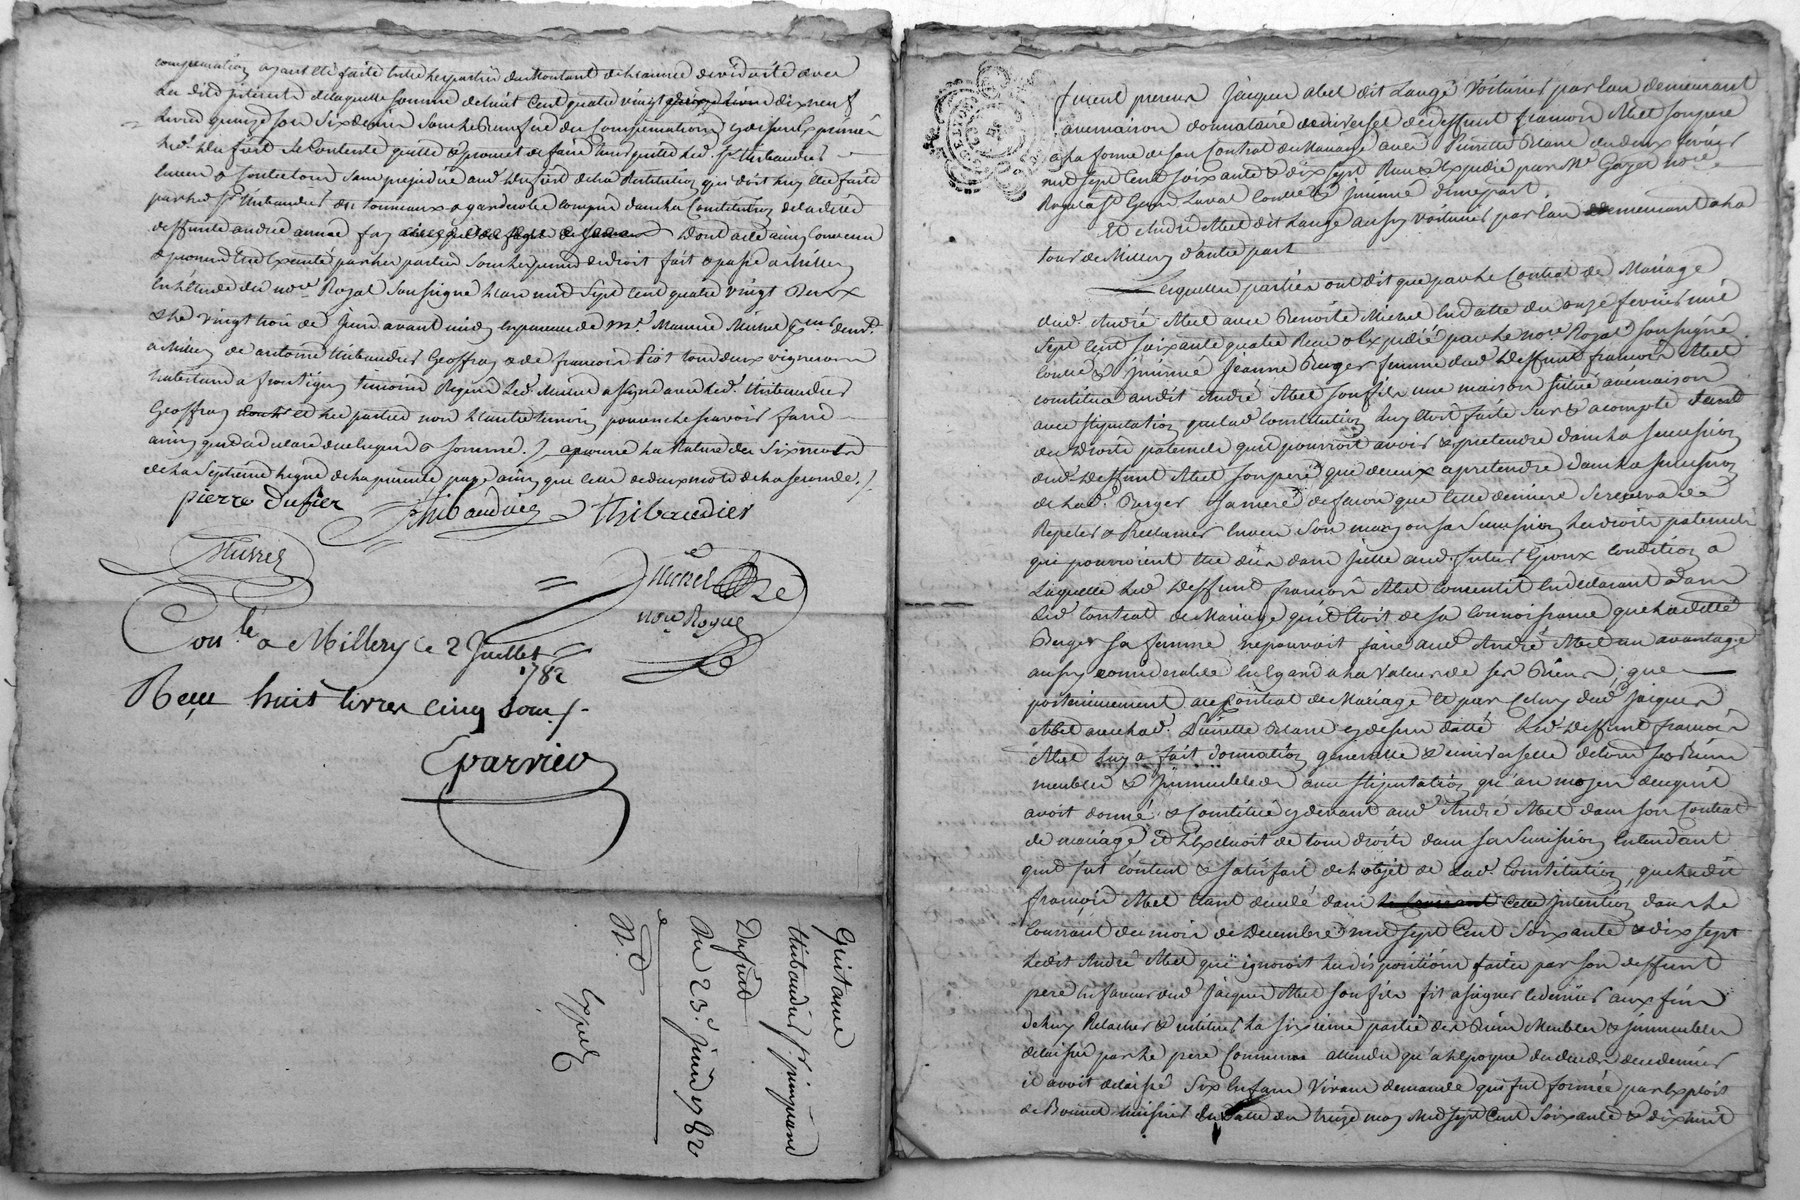 compensation ayant été faite entre les parties du montant de l'année de viduité avec
la dite présente de laquelle somme de huit cent quatre vingt dix neuf
livres quinze sols six deniers sous le bénéfice des compensations
led. Dufiert se contente quitte & promet de faire tenir quitte led. Sr Thibaudier
envers & contre tous sans préjudice aud. Dufiert de la restitution qui doit luy être faite
par led. Sr Thibaudier des tonneaux & garderobe compris dans la constitution de ladite
deffunte andrée année Dont acte ainsi convenu
& promis être exécuté par les parties sous les peines de droit fait & passé a Millery
en l'étude du nore Royal soussigné l'an mil sept cent quatre vingt Deux
& le vingt trois de Juin avant midy en présence de Mr Maurice Michel
a Millery de antoine thibaudier Geoffray & de françois Piot tous deux vignerons
habitants a frontigny témoins Requis led. Michel a signé avec led. thibaudier
Geoffray et les parties non l'autre témoin pour ne le savoir faire
ainsi qu'il a déclaré de ce enquis & sommé ./. approuvé la Rature des six mots
de la septième ligne de la présente page ainsi que celle de deux mots de la seconde ./.
pierre Dufier Thibaudier Thibaudier
Michel
nore Royal
Conlé a Millery le 2 Juillet
1782
Reçu huit livres cinq sous ./.
Eparvier
Quittance
thibaudier Sr
Dufiert
Du 23e juin 1782
N. d
Expée
furent présens Jacques Abel dit Langé Voiturier par eau demeurant
a vernaison donnataire universel de deffunt françois Abel son père
a la forme de son Contrat de Mariage avec Pierrette Blanc du deux février
mil sept cent soixante & dix sept Reçu & expédié par Me Gayet nore
Royal a St Genis Laval Contrôlé & Insinué d'une part
Et André Abel dit Langé aussy voiturier par eau demeurant a la
tour de Millery d'autre part
Lesquelles parties ont dit que par le Contrat de Mariage
dud. André Abel avec Benoite Michel en datte du onze février mil
sept cent soixante quatre Reçu & expédié par le nore Royal soussigné
Contrôlé & Insinué Jeanne Burger femme dud. deffunt françois Abel
constitua audit André Abel son fils une maison située a vernaison
avec stipulation que lad. constitution luy étoit faite sur & a compte tant
des droits paternels qu'il pourroit avoir & prétendre dans la succession
dud. deffunt Abel son père que de ceux a prétendre dans la succession
de lad. Burger sa mère de façon que cette dernière se réserva de
Répéter & Réclamer envers son mary ou sa succession les droits paternels
qui pourroient être dûs dans icelle aud. futur Epoux condition a
Laquelle led. deffunt françois Abel consentit en déclarant dans
led. Contrat de Mariage qu'il étoit de sa connoissance que ladite
Burger sa femme ne pouvoit faire aud. André Abel un avantage
aussy considérable en égard a la valeur de ses Biens, que
postérieurement au Contrat de Mariage et par celuy dud. Jacques
Abel avec lad. Pierrette Blanc cydessus datté led. deffunt françois
Abel luy a fait donnation générale & universelle de tous ses Biens
meubles & Immeubles avec stipulation qu'au moyen de ce qu'il
avoit donné & Constitué cydevant aud. André Abel dans son Contrat
de mariage, il l'excluoit de tous droits dans sa succession entendant
qu'il fut content & satisfait de l'objet de lad. Constitution, que ledit
françois Abel étant décédé dans cette intention dans le
Courrant du mois de Décembre mil sept Cent Soixante & dix sept
ledit André Abel qui ignoroit les dispositions faites par son deffunt
père en faveur dud. Jacques Abel son fils fit assigner ce dernier aux fins
de luy Relacher & restituer la sixième partie des Biens Meubles & Immeubles
délaissés par le père Commun attendu qu'a l'époque du décès de ce dernier
il avoit délaissé Six Enfans Vivans demande qui fut formée par Exploit
de Bonnet huissier en datte du treize may Mil sept Cent Soixante & dix huit